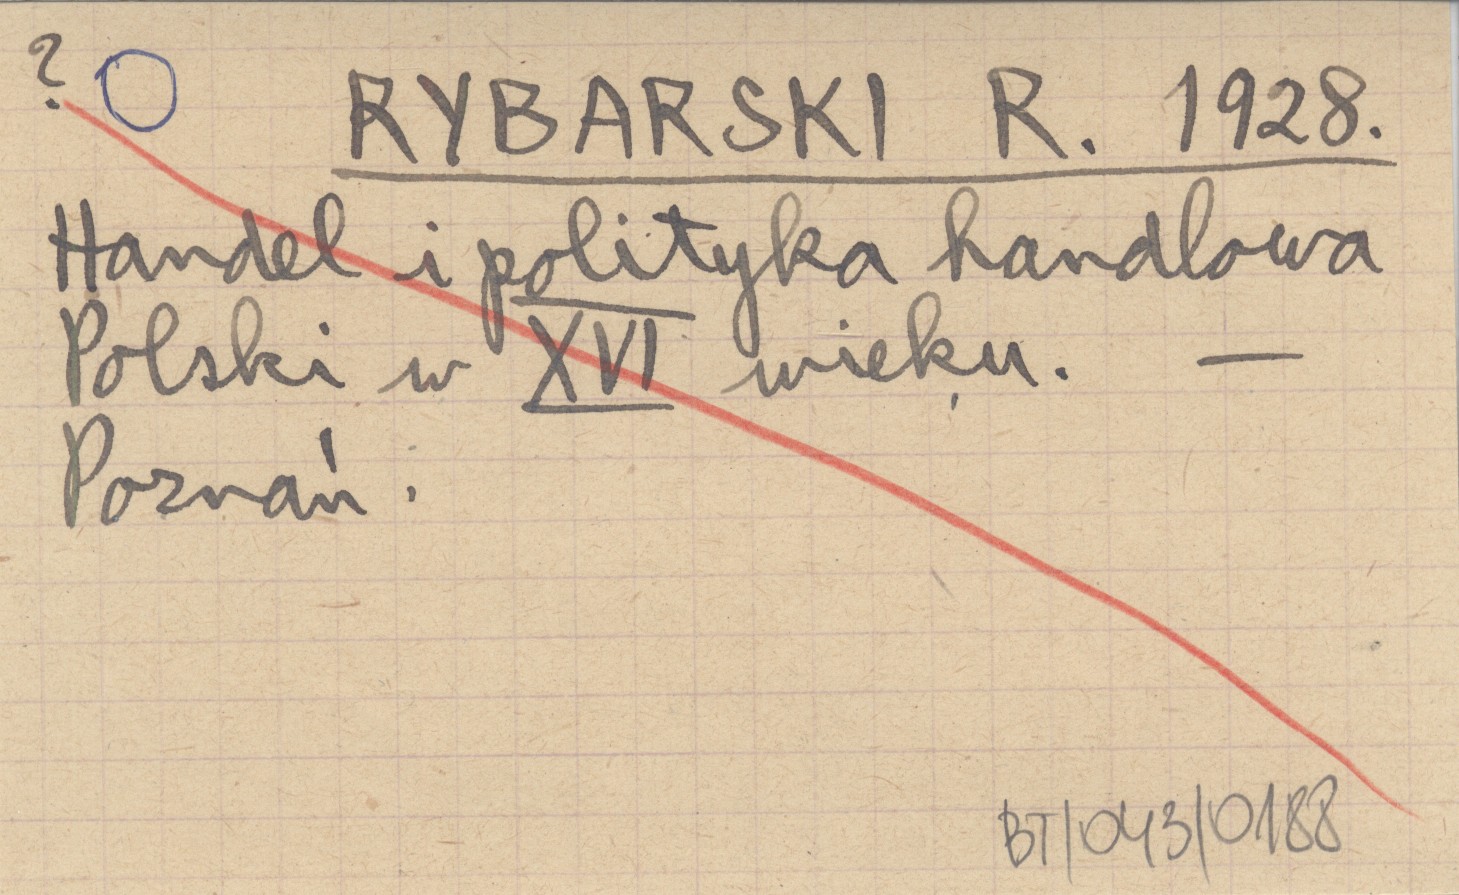 ?
RYBARSKI R. 1928.
Handel i polityka handlowa
Polski w XVI wieku. —
Poznań.
BT/043/0188